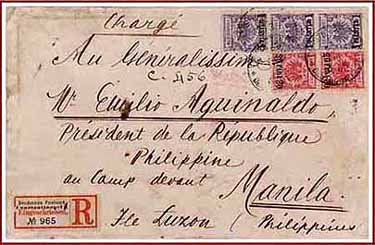 Chargé
Au Généralissime
C. 456
Mr Emilio Aguinaldo,
Président de la République
Philippine
au Camp devant
Manila.
Ile Luzon (Philippines)
Constantinopel 1
Eingeschrieben.
№ 965
R